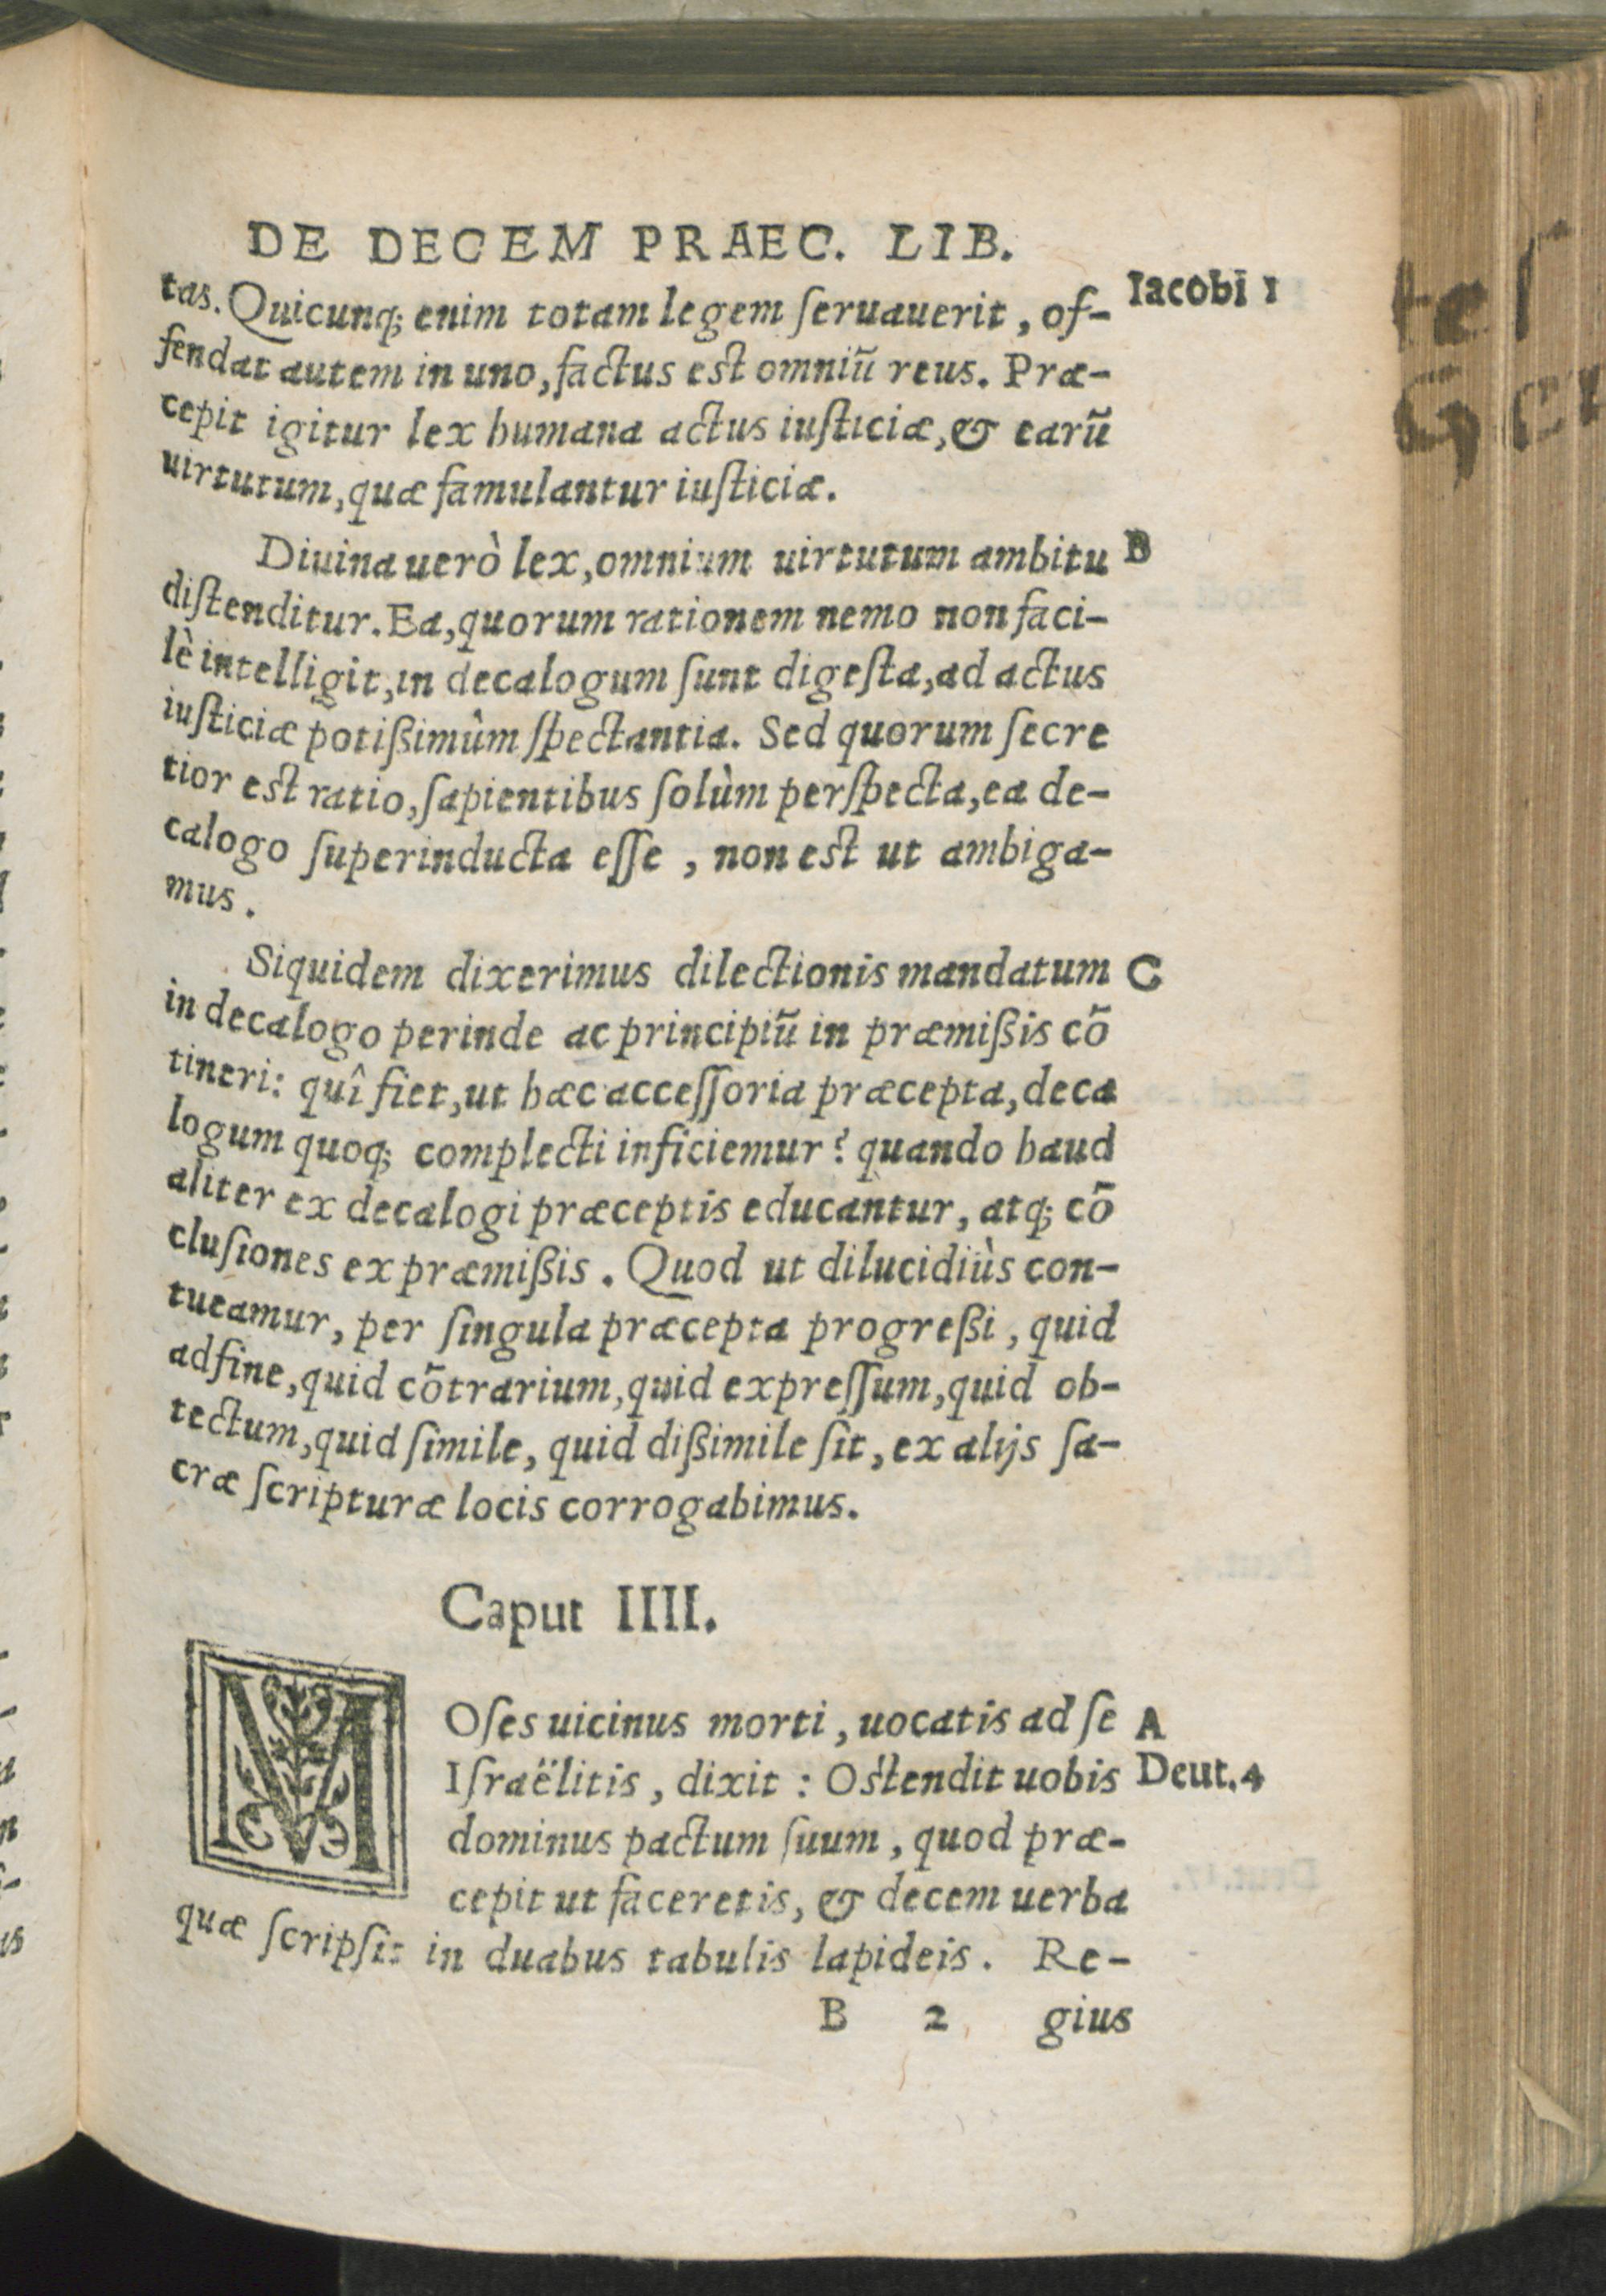 DE DECEM PRAEC. LIB.
tas. Quicunq; enim totam legem ſeruauerit, of- Iacobi 1
fendat autem in uno, factus est omniũ reus. Præ-
cepit igitur lex humana actus iuſticiæ, & earũ
uirtutum, quæ famulantur iuſticiæ.
Diuina uerò lex, omnium uirtutum ambitu B
diſtenditur. Ea, quorum rationem nemo non faci-
lè intelligit, in decalogum ſunt digeſta, ad actus
iuſticiæ potißimûm ſpectantia. Sed quorum ſecre
tior est ratio, ſapientibus ſolùm perſpecta, ea de-
calogo ſuperinducta eſſe, non est ut ambiga-
mus.
Siquidem dixerimus dilectionis mandatum C
in decalogo perinde ac principiũ in præmißis cõ
tineri: quî fiet, ut hæc acceſſoria præcepta, deca
logum quoq; complecti inficiemur? quando haud
aliter ex decalogi præceptis educantur, atq; cõ
cluſiones ex præmißis. Quod ut dilucidiùs con-
tueamur, per ſingula præcepta progreßi, quid
adfine, quid cõtrarium, quid expreſſum, quid ob-
tectum, quid ſimile, quid dißimile ſit, ex alijs ſa-
cræ ſcripturæ locis corrogabimus.
Caput IIII.
MOſes uicinus morti, uocatis ad ſe A
Iſraëlitis, dixit: Ostendit uobis Deut. 4
dominus pactum ſuum, quod præ-
cepit ut faceretis, & decem uerba
quæ ſcripſit in duabus tabulis lapideis. Re-
B 2 gius